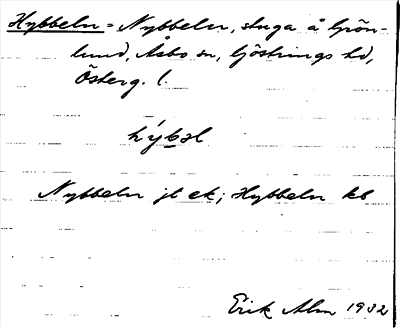 Hybbeln = Nybbeln, stuga å Grön-
lund, Åsbo sn, Göstrings hd,
Österg. l.
hýbəl
Nybbeln jb ek; Hybbeln kb
Erik Alm 1932